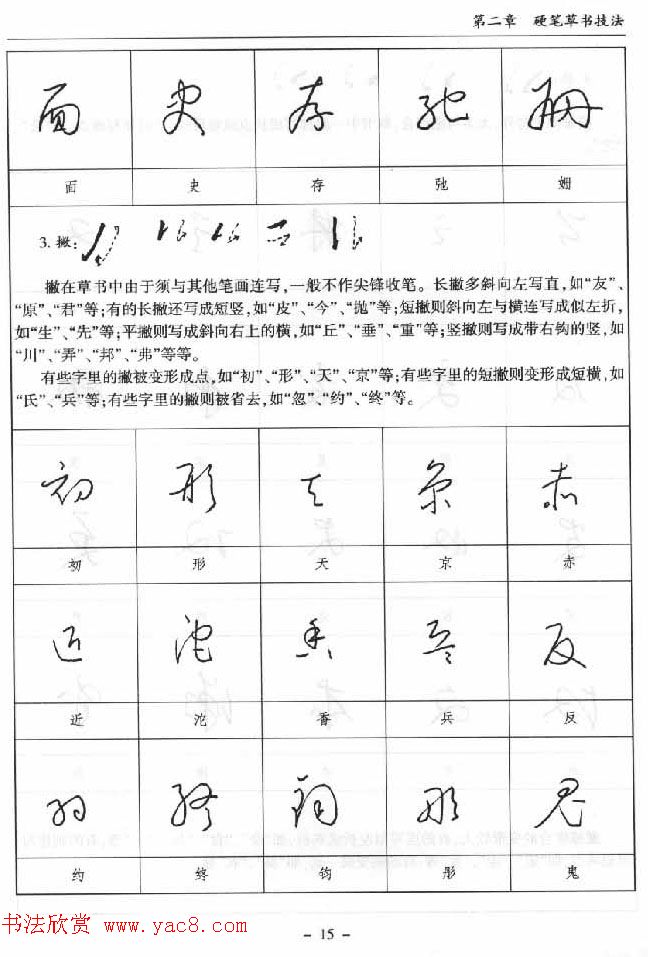 第二章 硬笔草书技法
面 史 存 弛 姗
面 史 存 弛 姗
3. 撇:
撇在草书中由于须与其他笔画连写,一般不作尖锋收笔。长撇多斜向左写直,如“友”、
“原”、“君”等;有的长撇还写成短竖,如“皮”、“今”、“抛”等;短撇则斜向左与横连写成似左折,
如“生”、“先”等;平撇则写成斜向右上的横,如“丘”、“垂”、“重”等;竖撇则写成带右钩的竖,如
“川”、“弄”、“邦”、“弗”等等。
有些字里的撇被变形成点,如“初”、“形”、“天”、“京”等;有些字里的短撇则变形成短横,如
“氏”、“兵”等;有些字里的撇则被省去,如“忽”、“约”、“终”等。
初 形 天 京 赤
初 形 天 京 赤
近 沱 香 兵 反
近 沱 香 兵 反
约 终 钧 形 鬼
约 终 钧 彤 鬼
书法欣赏 www.yac8.com
- 15 -